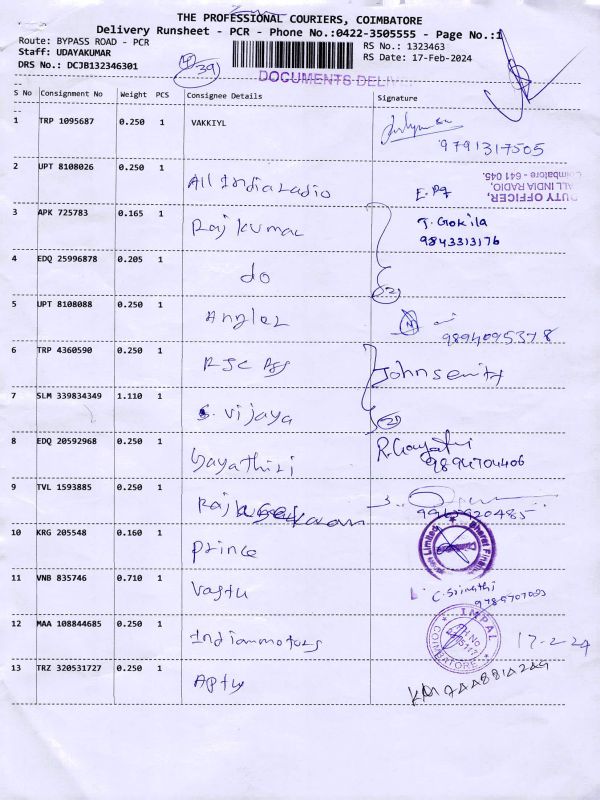 THE PROFESSIONAL COURIERS, COIMBATORE
Delivery Runsheet - PCR - Phone No.:0422-3505555 - Page No.:1
Route: BYPASS ROAD - PCR
Staff: UDAYAKUMAR
DRS No.: DCJB132346301
39
RS No.: 1323463
RS Date: 17-Feb-2024
DOCUMENTS DELIV
S No Consignment No Weight PCS Consignee Details Signature
1 TRP 1095687 0.250 1 VAKKIYL
9791317505
2 UPT 8108026 0.250 1 All India radio
DUTY OFFICER,
ALL INDIA RADIO,
Coimbatore - 641 045.
3 APK 725783 0.165 1 Rajkumar J. Gokila
9843313176
4 EDQ 25996878 0.205 1 do
5 UPT 8108088 0.250 1 Anglez
9894095378
6 TRP 4360590 0.250 1
7 SLM 339834349 1.110 1 S. Vijaya
8 EDQ 20592968 0.250 1 Gayathiri R. Gayatri
9894704406
9 TVL 1593885 0.250 1
10 KRG 205548 0.160 1 Prince
11 VNB 835746 0.710 1 Vastu C. Srinathi
12 MAA 108844685 0.250 1 Indianmotors
IMPAL
COIMBATORE
17-2-24
13 TRZ 320531727 0.250 1